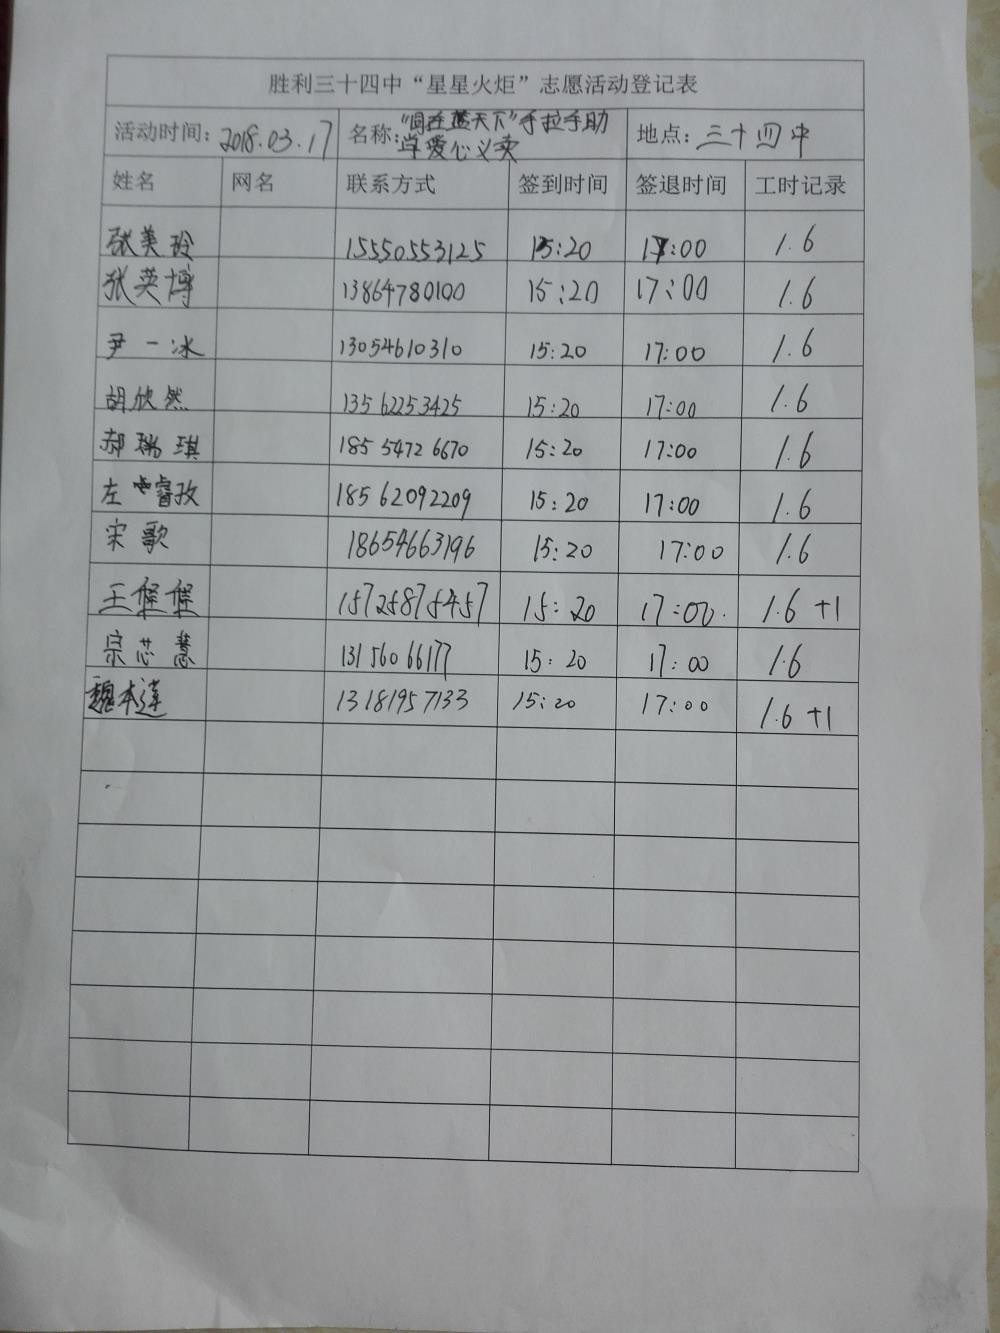 胜利三十四中“星星火炬”志愿活动登记表
活动时间：2018.03.17 名称：“同在蓝天下”手拉手助学爱心义卖 地点：三十四中
姓名 网名 联系方式 签到时间 签退时间 工时记录
张美玲 15550553125 15:20 17:00 1.6
张英博 13864780100 15:20 17:00 1.6
尹一冰 13054610310 15:20 17:00 1.6
胡欣然 13562253425 15:20 17:00 1.6
郝瑞琪 18554726670 15:20 17:00 1.6
左睿孜 18562092209 15:20 17:00 1.6
宋歌 18654663196 15:20 17:00 1.6
王 15725875457 15:20 17:00. 1.6 +1
宗芯慧 13156066177 15:20 17:00 1.6
魏本莲 13181957133 15:20 17:00 1.6 +1